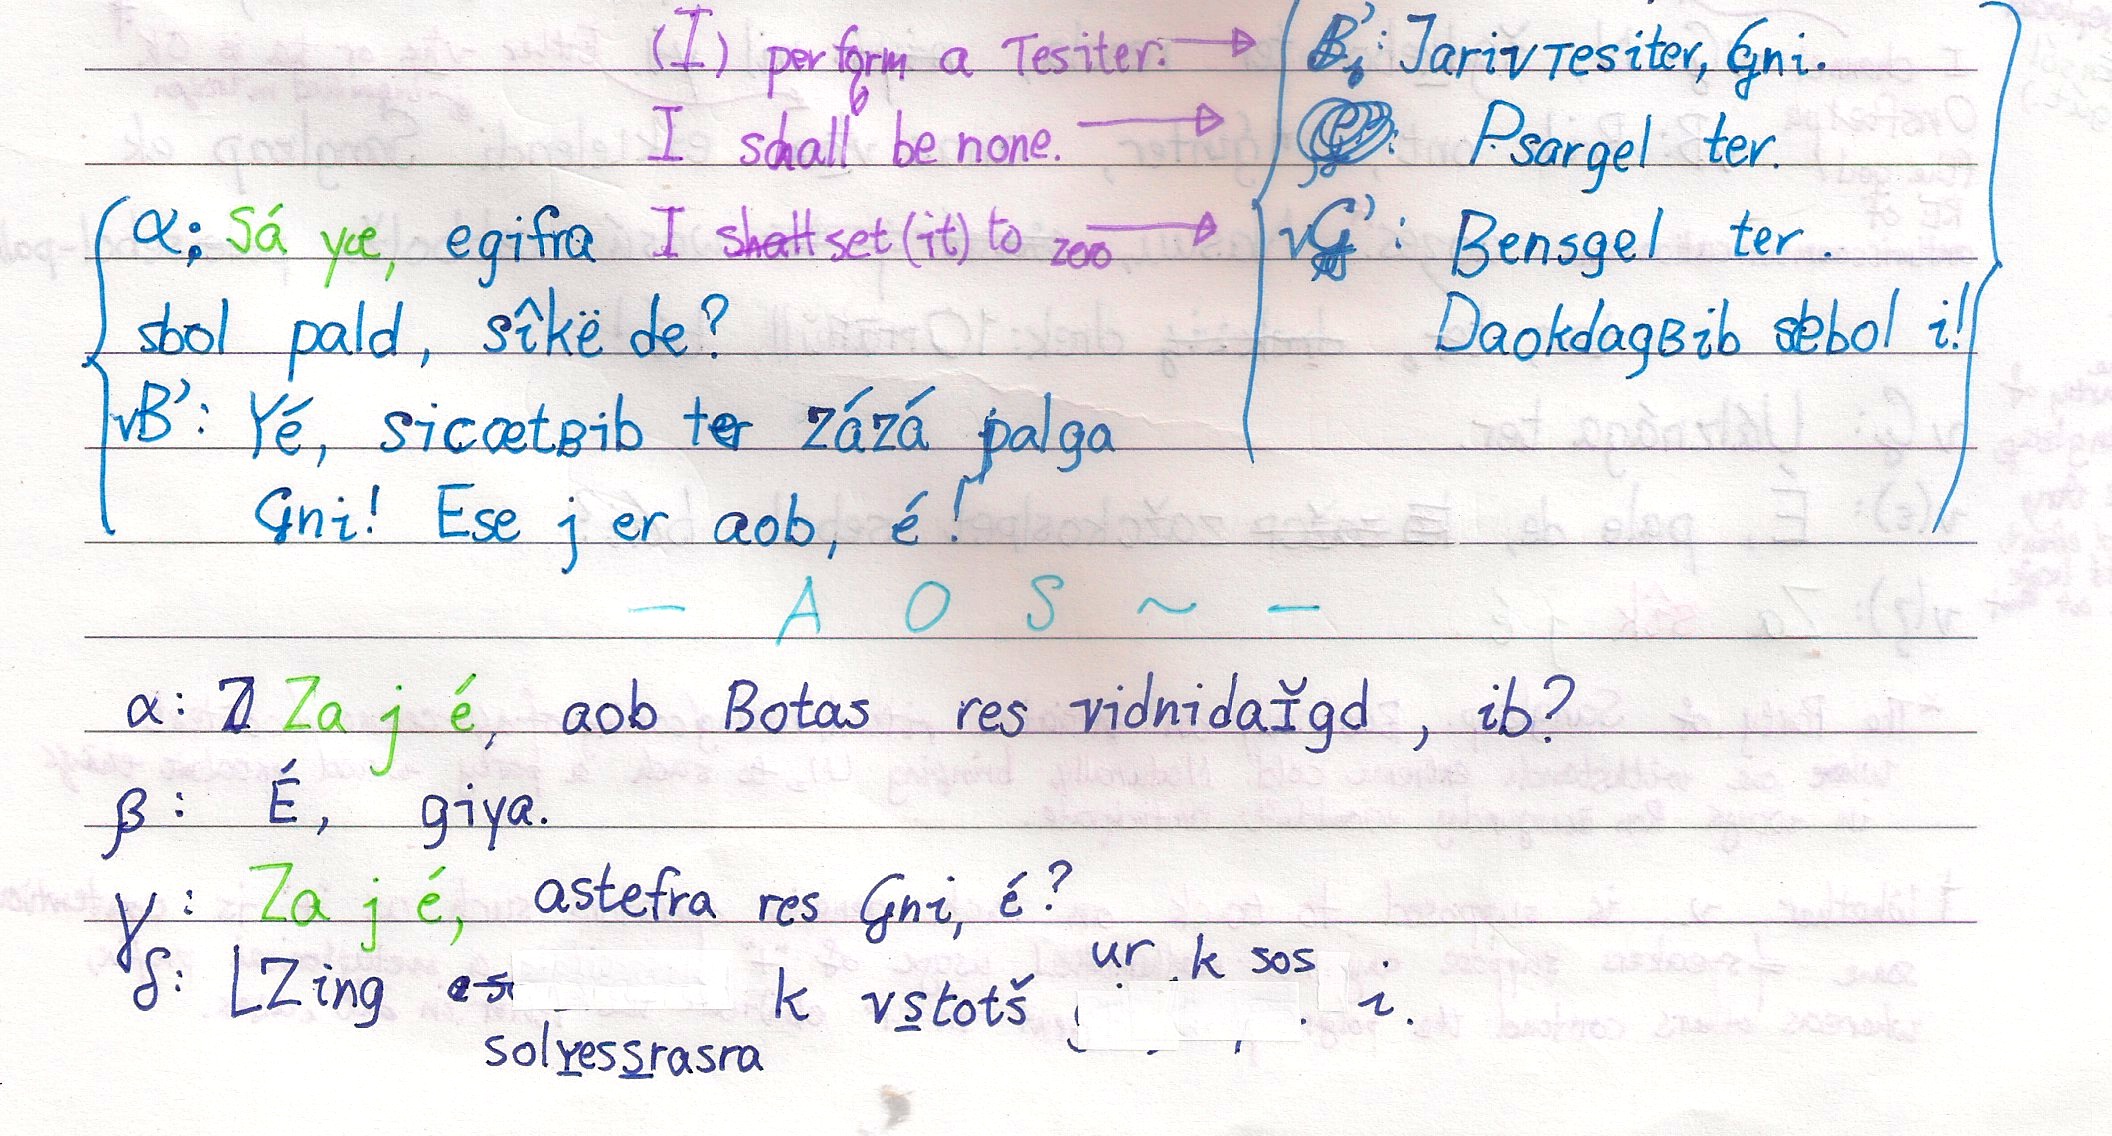 (I) perform a Tesiter. → B': Jariv Tesiter, Gni.
I shall be none. → : Psargel ter.
α: Sá yæ, egifra I set (it) to zoo → vG': Bensgel ter.
sbol pald, sîkë de? DaokdagBib sebol i!
vB': Yé, sicætBib ter zázá palga
Gni! Ese j er aob, é!
— A O S ~ —
α: Za j é, aob Botas res vidnidaǐgd, ib?
β: É, giya.
γ: Za j é, astefra res Gni, é?
ur k sos
δ: LZing k vstotš i.
solyessrasra